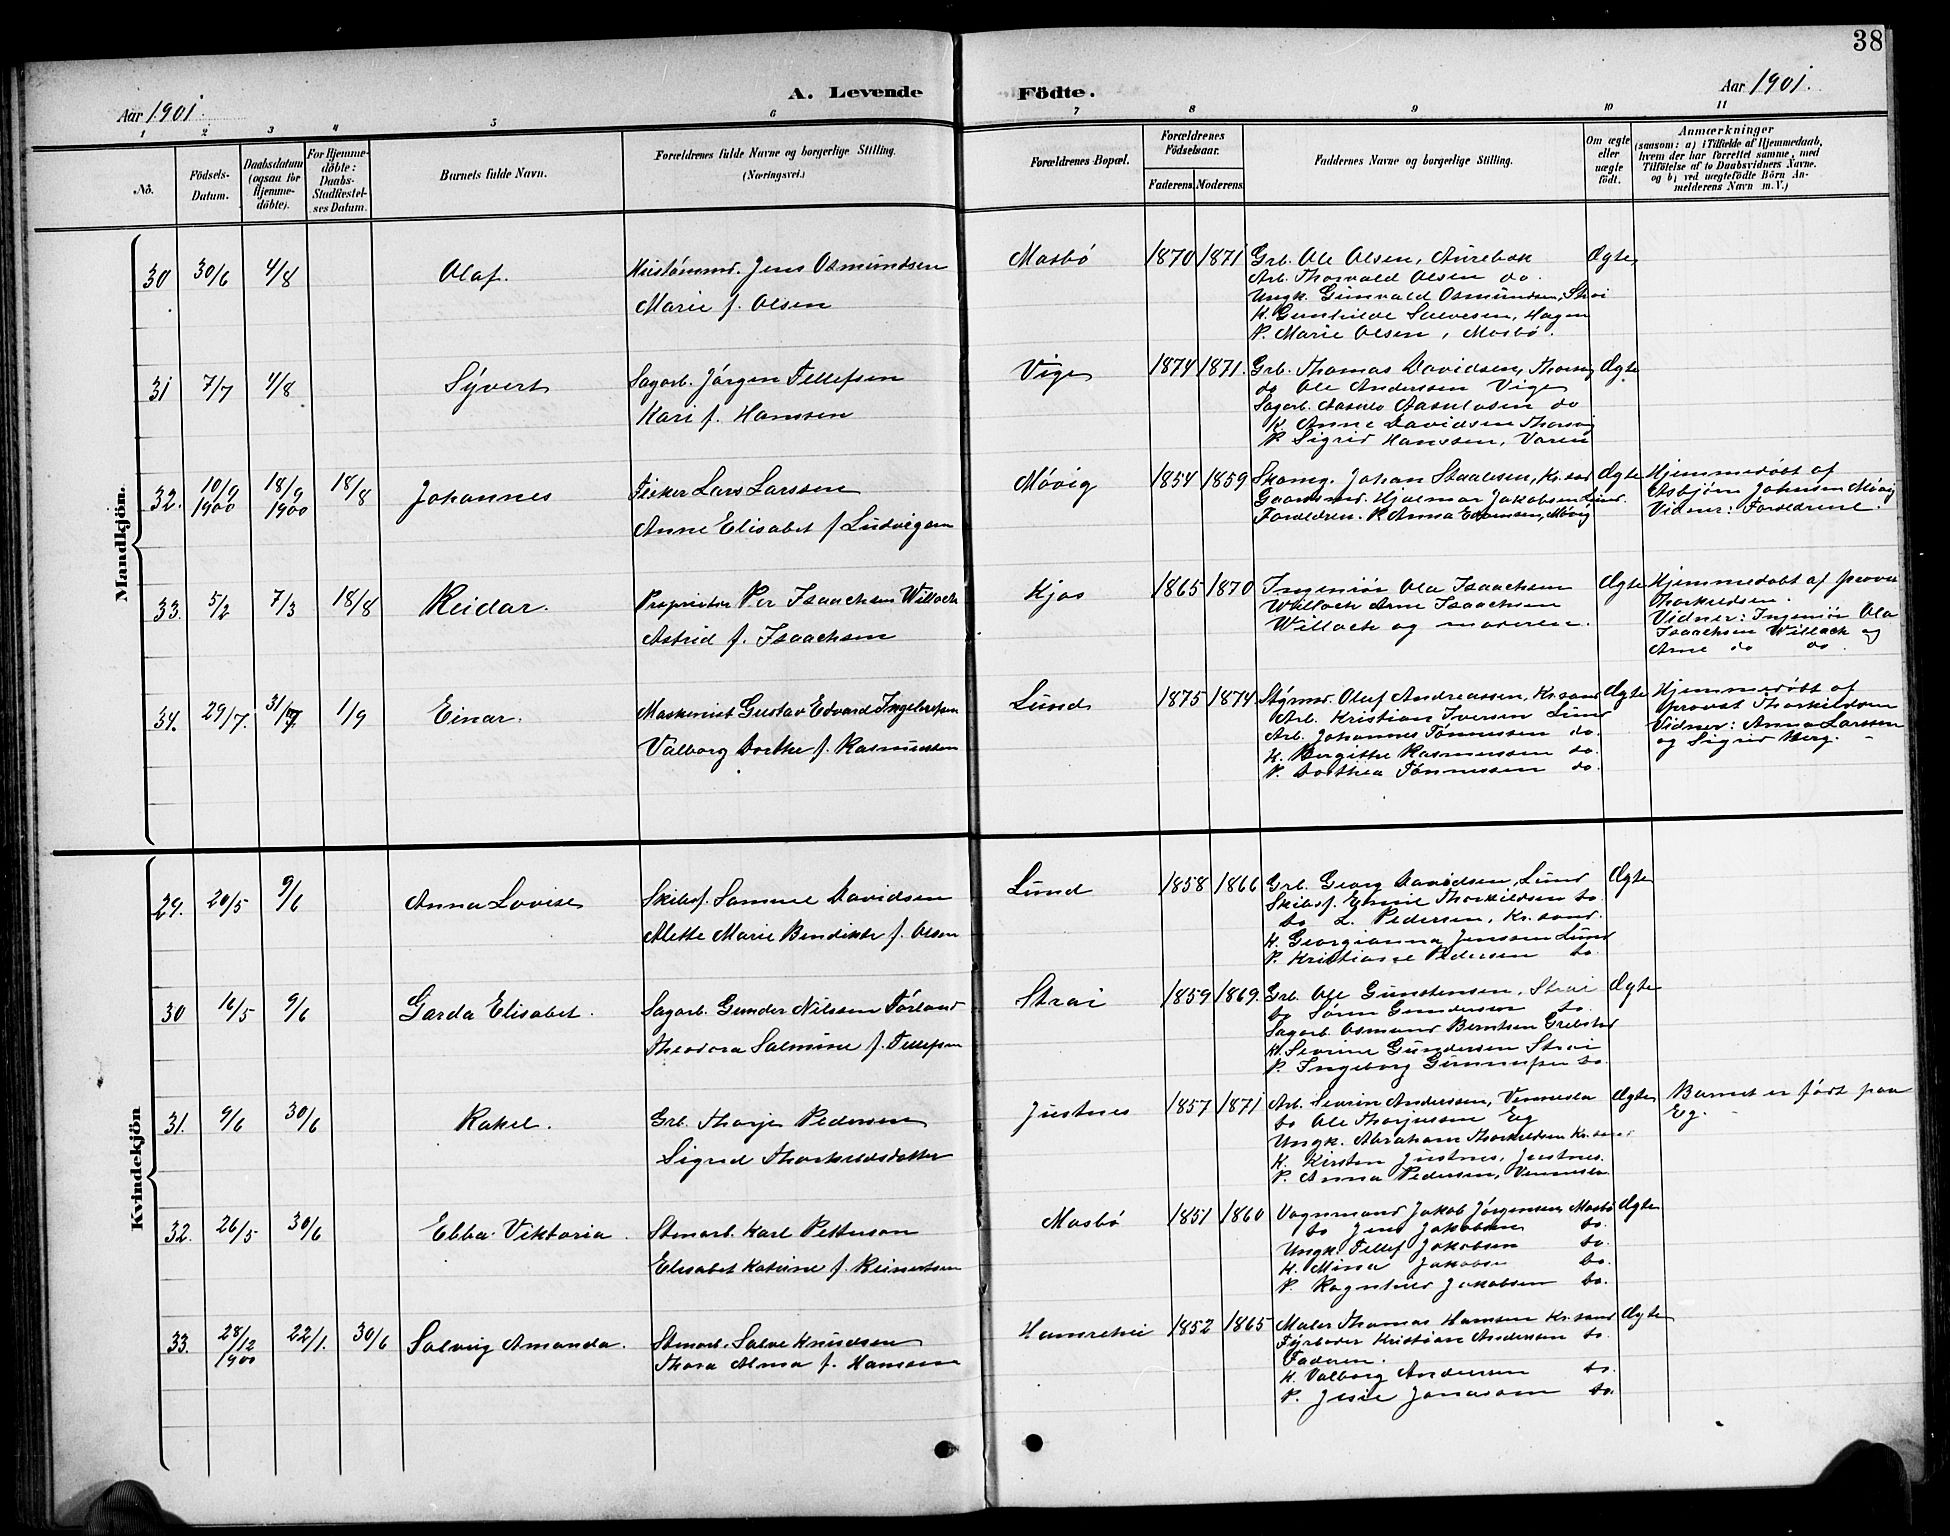 38
Aar 1901.
A. Levende Födte.
Aar 1901.
1 2 3 4 5 6 7 8 9 10 11
No.
Födsels-
Datum.
Daabsdatum
(ogsaa for
Hjemme-
döbte).
For Hjemme-
döbte:
Daabs-
Stadfæstel-
ses Datum.
Barnets fulde Navn.
Forældrenes fulde Navne og borgerlige Stilling.
(Næringsvei.)
Forældrenes Bopæl.
Forældrenes
Födselsaar.
Faderens. Moderens.
Faddernes Navne og borgerlige Stilling.
Om ægte
eller
uægte
födt.
Anmærkninger
(saasom: a) i Tilfælde af Hjemmedaab,
hvem der har forrettet samme, med
Tilföielse af to Daabsvidners Navne.
og b) ved uægtefödte Börn An-
melderens Navn m. V.)
Mandkjön.
30 30/6 4/8 Olaf.
Jens Osmundsen
Marie f. Olsen
Mosbø 1870 1871
Grb. Ole Olsen, Aurebæk
Arb. Thorvald Olsen do.
Ungk. Gunvald Osmundsen, Strai
K. Gunhilde Salvesen, Hagen
P. Marie Olsen, Mosbø.
Ægte
31 7/7 4/8 Syvert
Sagarb. Jørgen Tellefsen
Kari f. Hansen
Vige 1874 1871.
Grb. Thomas Davidsen,
do Ole Andersen Vige
Sagarb. do
K. Anne Davidsen
P. Sigrid Hanssen,
Ægte
32. 10/9 1900 18/9 1900 18/8 Johannes
Fisker Lars Larssen
Anne Elisabet f Ludvigsen
Møvig 1854 1859
Skomg. Johan Staalesen, Kr.sand
Gaardmd. Hjalmar Jakobsen Lund.
Forældren. P. Anna Møvig
Ægte
Hjemmedøbt af
Asbjørn Johnsen Møvig
Vidner: Forældrene.
33. 5/2 7/3 18/8 Reidar.
Proprietær Per Isaachsen Willoch
Astrid f. Isaachsen
Kjos 1865 1870
Ingeniør Ola Isaachsen
Willoch Arne Isaachsen
Willoch og moderen.
Ægte
Hjemmedøbt af provst
Thorkildsen.
Vidner: Ingeniør Ola
Isaachsen Willoch og
Arne do do.
34. 29/7. 31/7 1/9 Einar.
Maskinist Gustav Edvard Ingebretsen
Valborg Dorthe f. Rasmussen
Lund 1875 1874
Styrmd. Olaf Andreassen, Kr.sand
Arb. Kristian Iversen Lund
Arb. Johannes Tønnessen do.
K. Bergitte Rasmussen do.
P. Dorthea Tønnessen do.
Ægte
Hjemmedøbt af
provst Thorkildsen
Vidner: Anna Larssen
og Sigrid Berg.
Kvindekjön
29. 20/5 9/6 Anna Lovise
Skibsf. Samuel Davidsen
Alette Marie Bendikte f. Olsen
Lund 1858 1866
Grb. Georg Davidsen, Lund
Skibsf. Thorkildsen do.
do L. Pedersen, Kr.sand.
K. Georgianna Jenssen Lund
P. Kristiane Pedersen do.
Ægte
30 16/5 9/6 Garda Elisabet.
Sagarb. Gunder Nilssen Førland
Theodora Salmine f. Tellefsen
Strai 1859 1869.
Grb. Ole Gunstensen, Strai
do Søren Gundersen do.
Sagarb. Osmund Berntsen
K. Severine Gundersen Strai
P. Ingeborg do.
Ægte
31. 9/6 30/6 Rakel.
Grb. Thorje Pedersen
Sigrid Thorkildsdatter
Justnes 1857 1871
Arb. Severin Anderssen, Vennesla
do Ole Thorjussen Eg
Ungk. Abraham Thorkildsen Kr.sand
K. Kirsten Justnes, Justnes.
P. Anna Pedersen, Vennesla
Ægte
Barnet er født paa
Eg.
32. 26/5 30/6 Ebba Viktoria.
Stenarb. Karl Petterson
Elisabet Katrine f. Reinertsen
Mosbø 1851 1860
Vognmand Jakob Jørgensen Mosbø
do Jens Jakobsen do.
Ungk. Tellef Jakobsen do.
K. Mina Jakobsen do.
P. Ragnhild Jakobsen do.
Ægte
33. 28/12 1900 22/1. 30/6 Solveig Amanda.
Stenarb. Salve Knudsen
Thora Alma f. Hansen
1852 1865
Maler Thomas Hansen Kr.sand
Fyrbøder Kristian Andersen do.
Faderen.
K. Valborg Andersen do.
P. Jonassen do.
Ægte